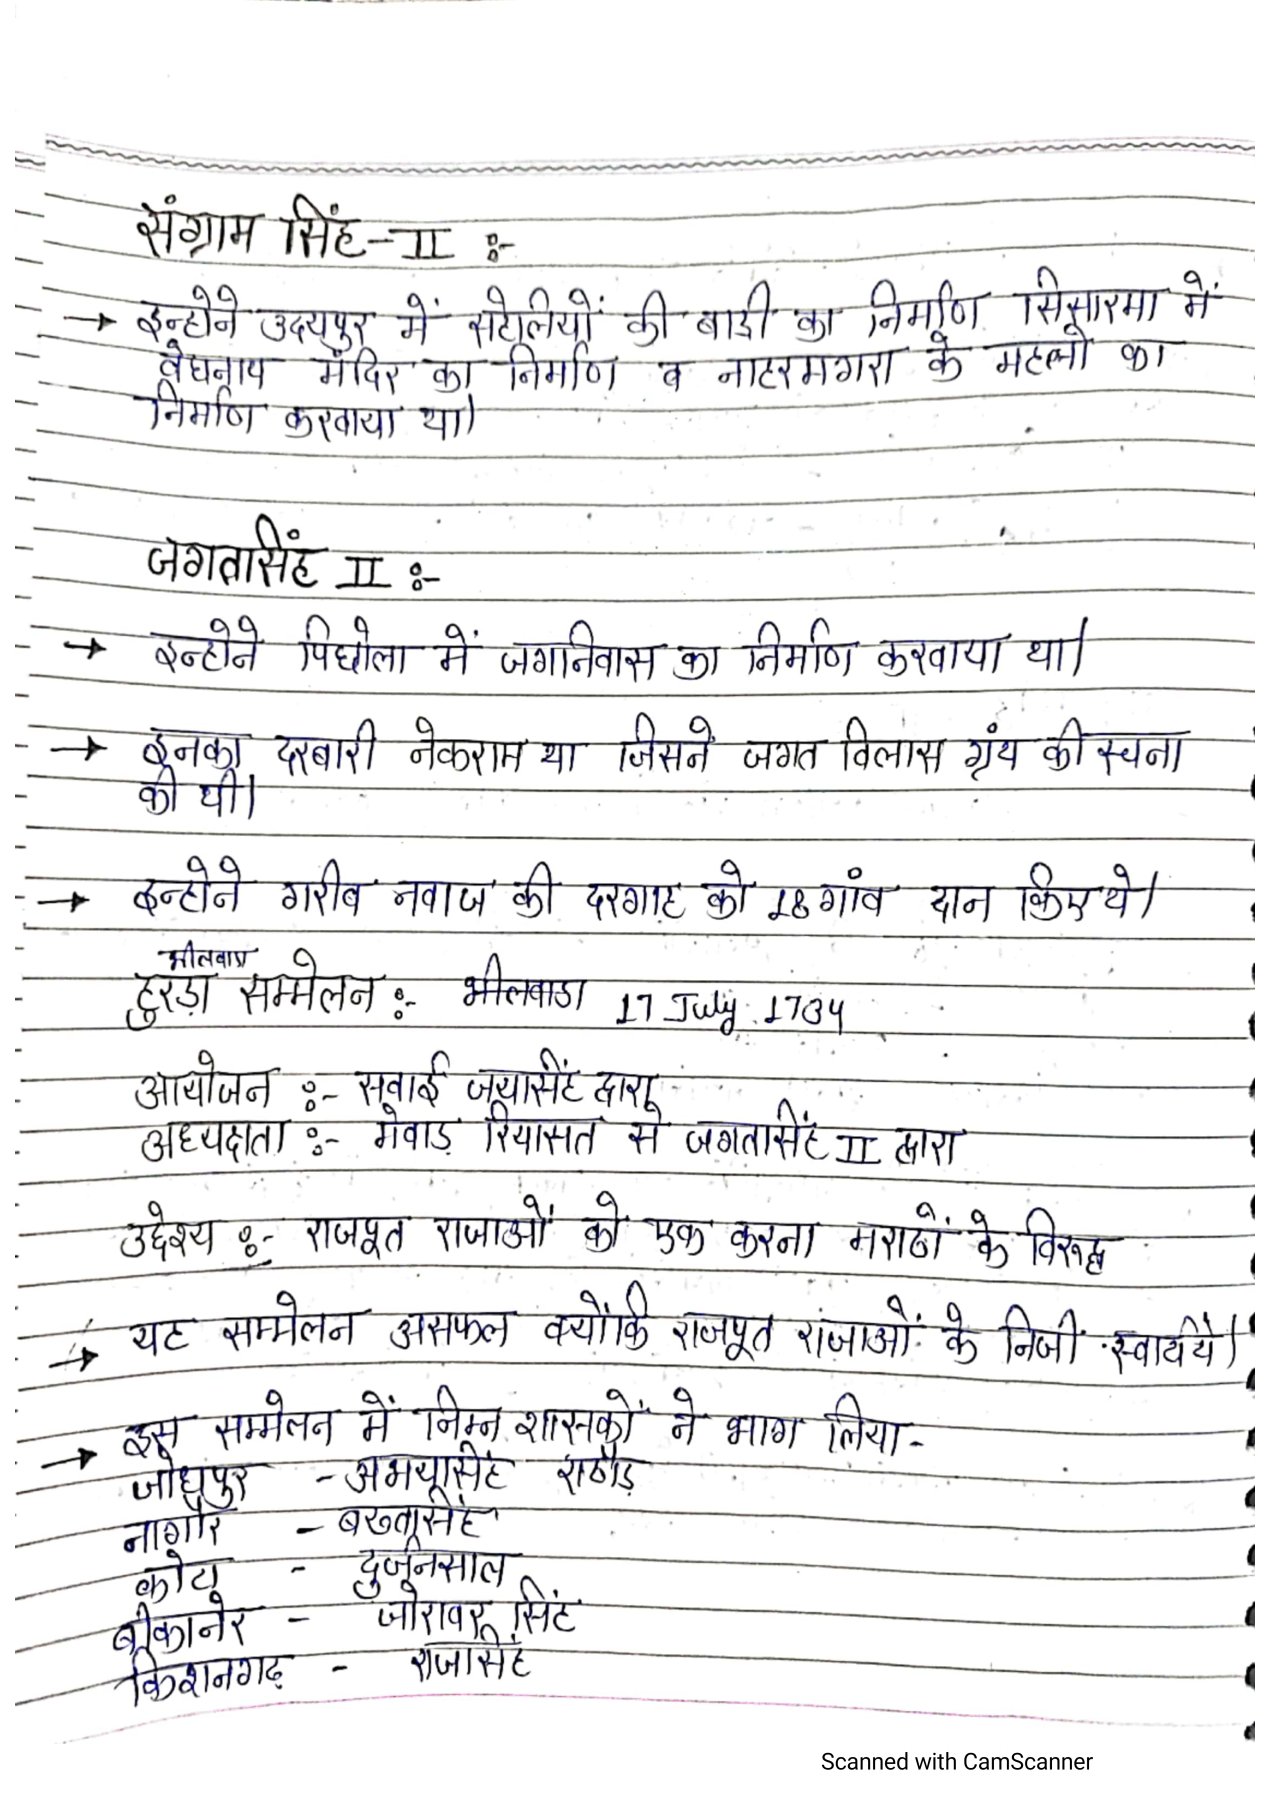 संग्राम सिंह-II :-
→ इन्होने उदयपुर में सहेलियों की बाडी का निर्माण सिसारमा में
वेघनाथ मंदिर का निर्माण व नाहरमगरा के महलो का
निर्माण करवाया था।
जगतसिंह II :-
→ इन्होने पिछोला में जगनिवास का निर्माण करवाया था।
→ इनका दरबारी नेकराम था जिसने जगत विलास ग्रंथ की रचना
की थी।
→ इन्होने गरीब नवाज की दरगाह को 18 गांव दान किए थे।
भीलवाड़ा
हुरड़ा सम्मेलन :- भीलवाडा 17 July 1734
आयोजन :- सवाई जयसिंह द्वारा
अध्यक्षता :- मेवाड़ रियासत से जगतसिंह II द्वारा
उद्देश्य :- राजपूत राजाओं को एक करना मराठों के विरुद्ध
→ यह सम्मेलन असफल क्योंकि राजपूत राजाओं के निजी स्वार्थ थे।
→ इस सम्मेलन में निम्न शासकों ने भाग लिया -
जोधपुर - अभयसिंह राठौड़
नागौर - बख्तसिंह
कोटा - दुर्जनसाल
बीकानेर - जोरावर सिंह
किशनगढ़ - राजसिंह
Scanned with CamScanner